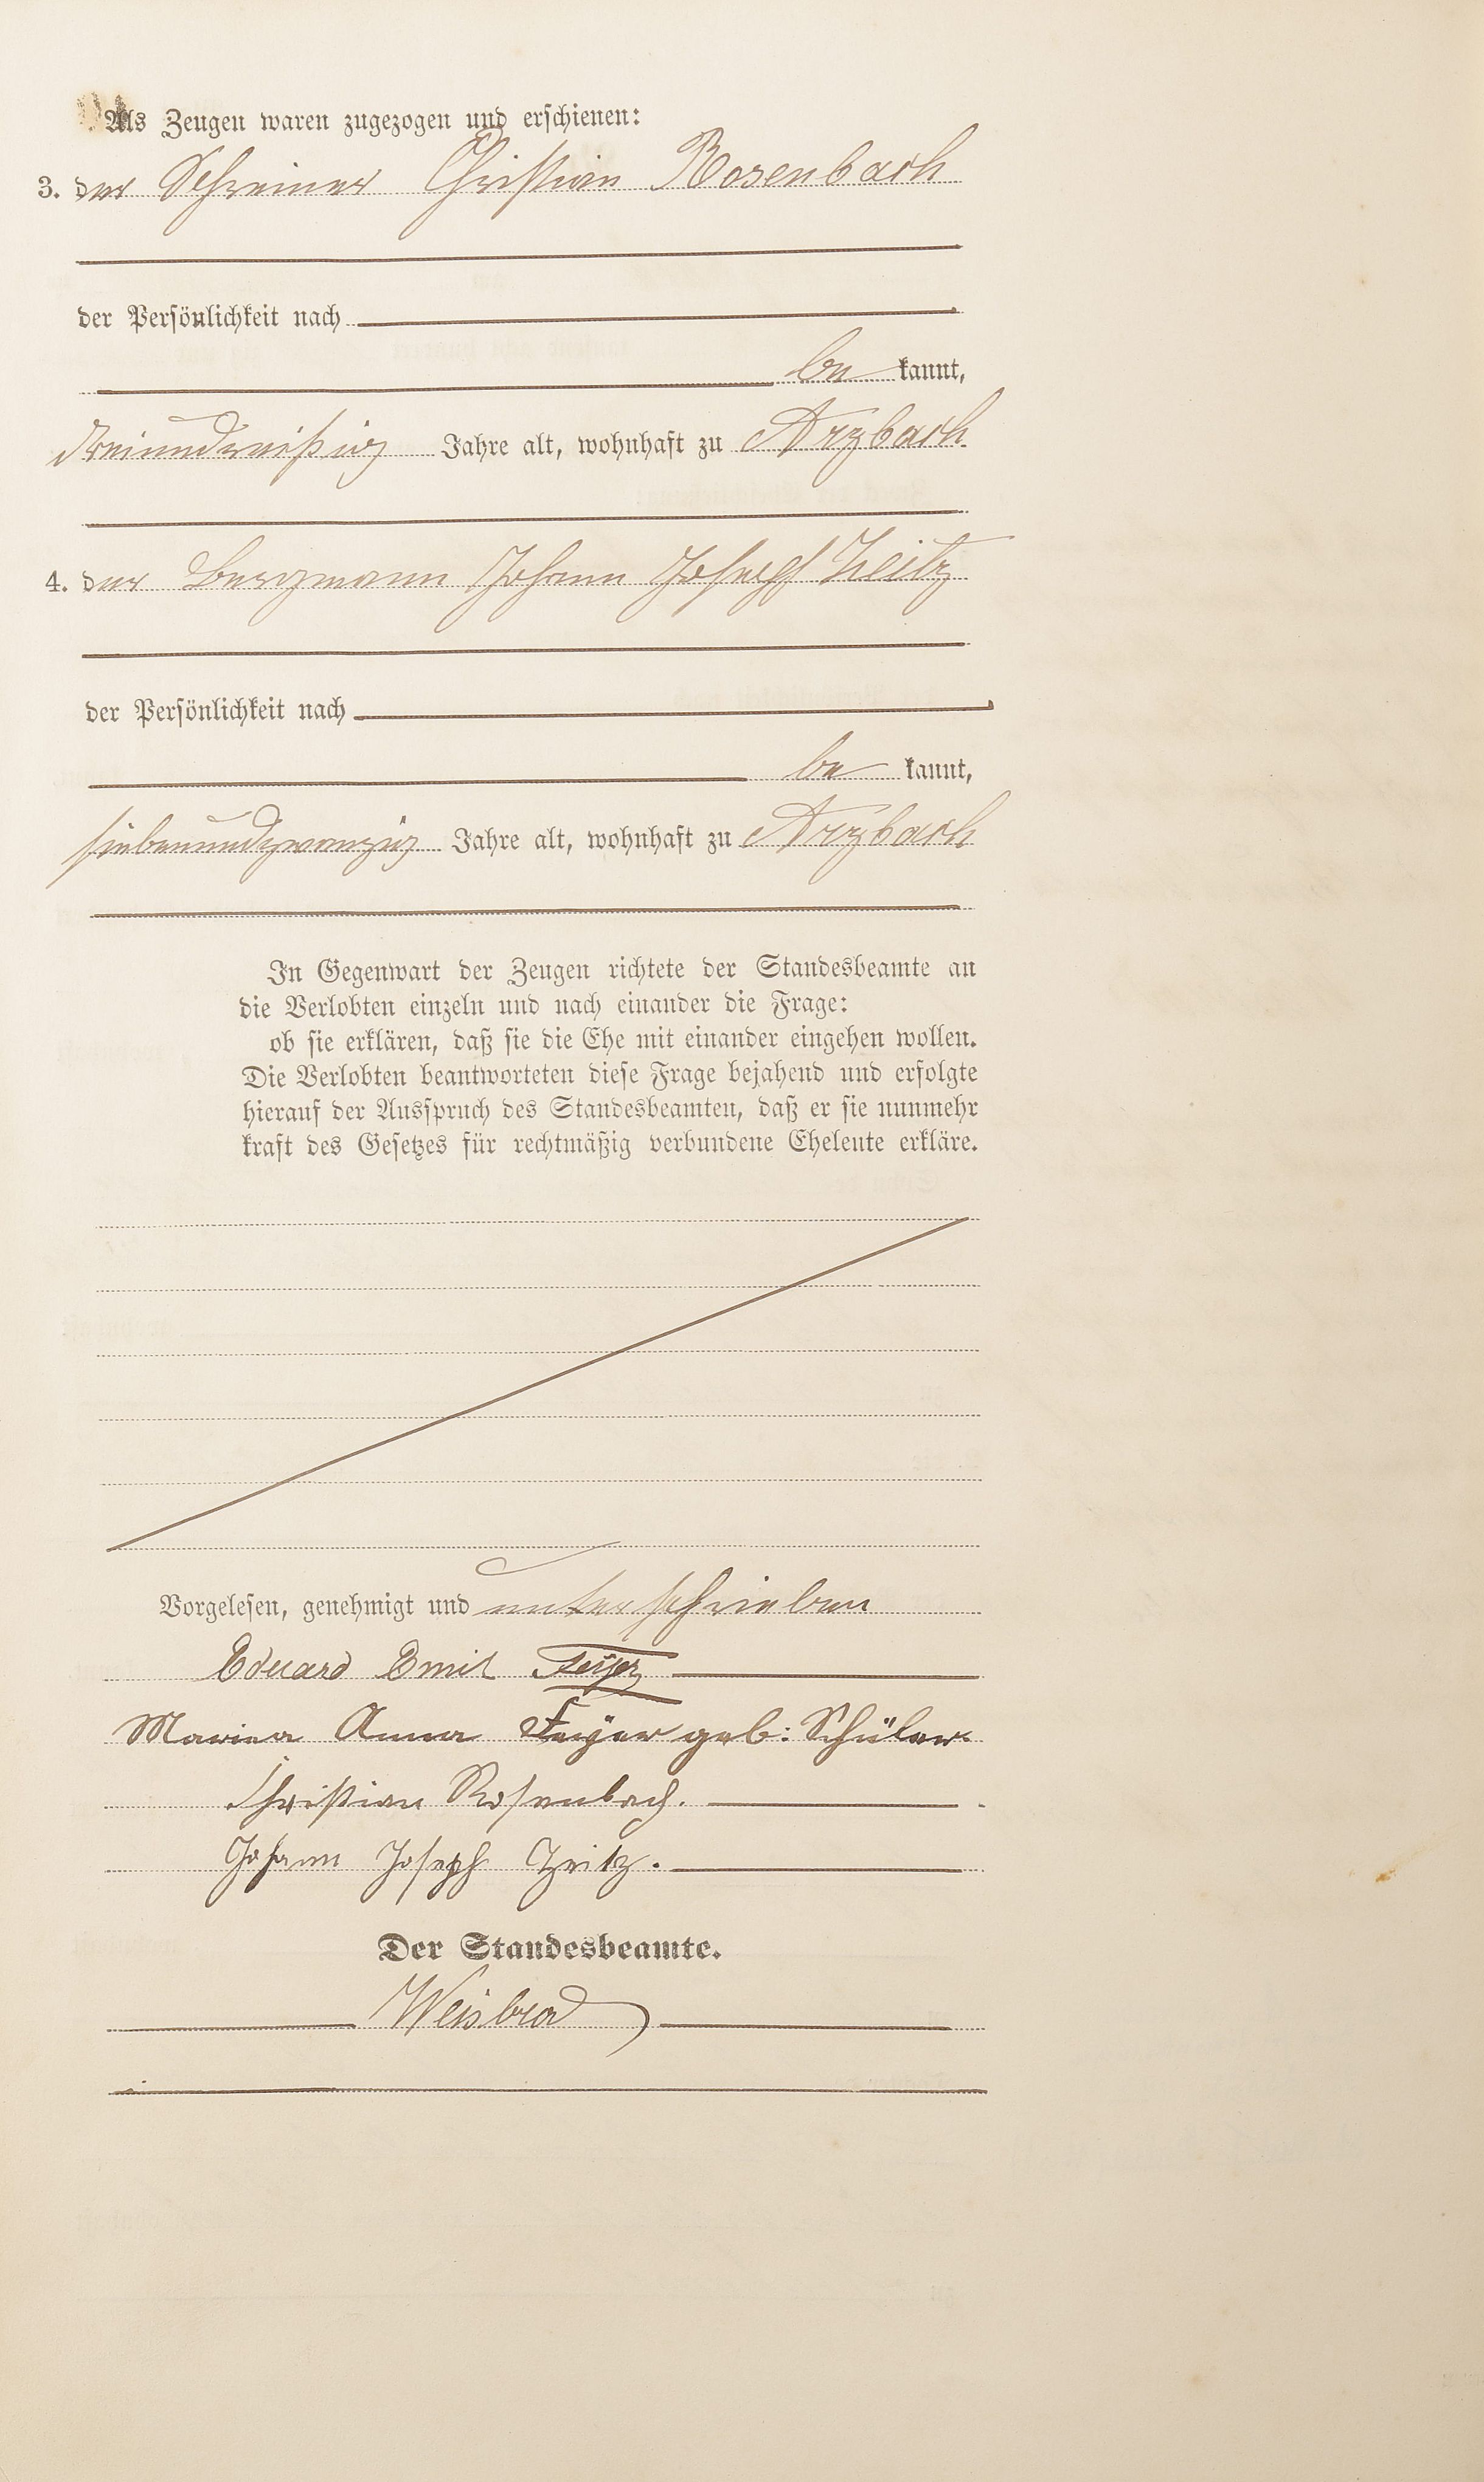 Als Zeugen waren zugezogen und erschienen:
3. der Schreiner Christian Rosenbach
der Persönlichkeit nach
be kannt,
dreiunddreißig Jahre alt, wohnhaft zu Arzbach
4. der Bergmann Johann Joseph Zeitz
der Persönlichkeit nach
be kannt,
siebenundzwanzig Jahre alt, wohnhaft zu Arzbach
In Gegenwart der Zeugen richtete der Standesbeamte an
die Verlobten einzeln und nach einander die Frage:
ob sie erklären, daß sie die Ehe mit einander eingehen wollen.
Die Verlobten beantworteten diese Frage bejahend und erfolgte
hierauf der Ausspruch des Standesbeamten, daß er sie nunmehr
kraft des Gesetzes für rechtmäßig verbundene Eheleute erkläre.
Vorgelesen, genehmigt und unterschrieben
Eduard Emil Feÿer
Maria Anna Feÿer geb: Schüler
Christian Rosenbach.
Johann Joseph Zeitz.
Der Standesbeamte.
Weisbrod